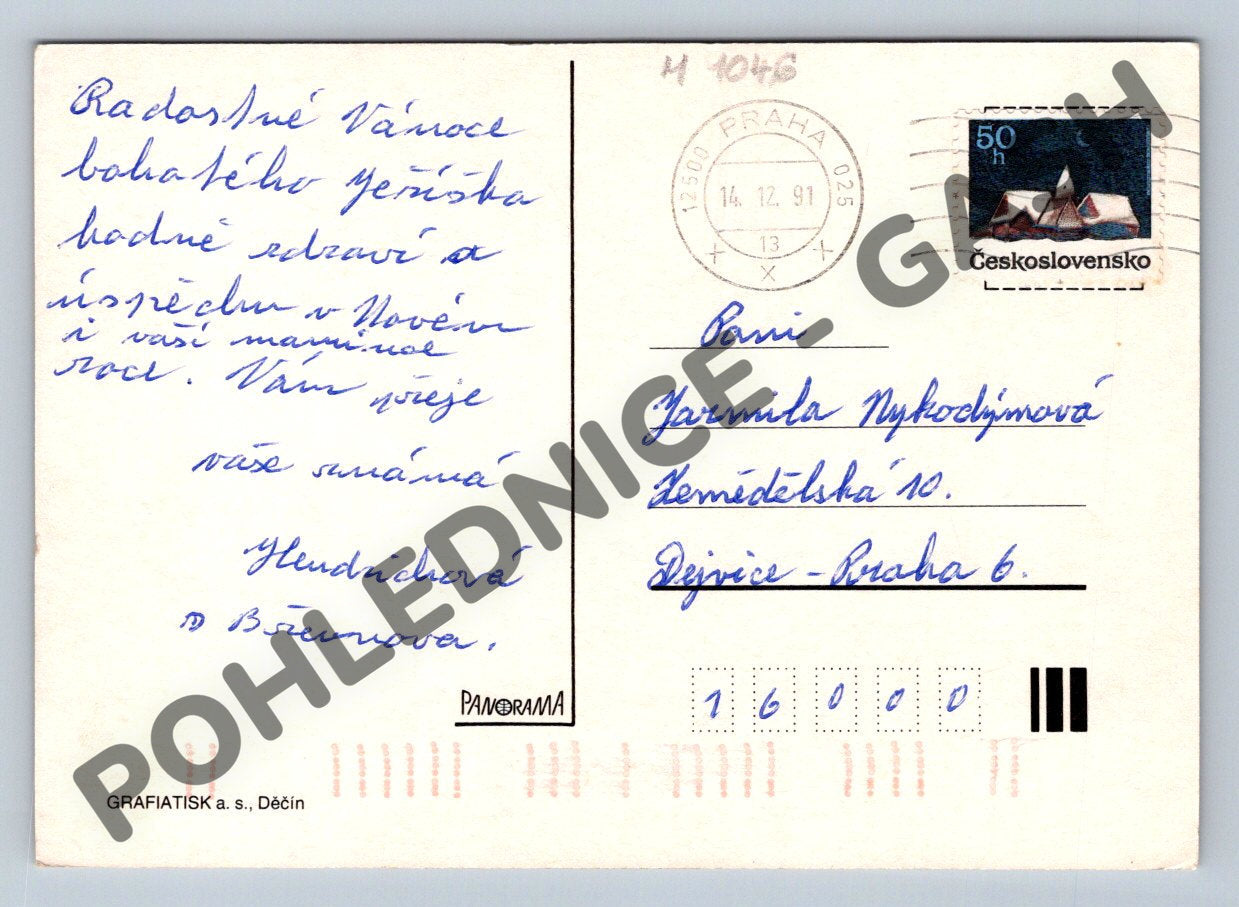 Radostné Vánoce
bohatého Ježíška
hodně zdraví a
úspěchu v Novém
i vaší mamince
roce. Vám přeje
vaše známá
Hendrichová
z Břevnova.
PANORAMA
GRAFIATISK a. s., Děčín
M 1046
12500 PRAHA 025
14. 12. 91
13
+ x +
50
h
Československo
Paní
Jarmila Nykodýmová
Zemědělská 10.
Dejvice - Praha 6.
16000
POHLEDNICE - GALAH